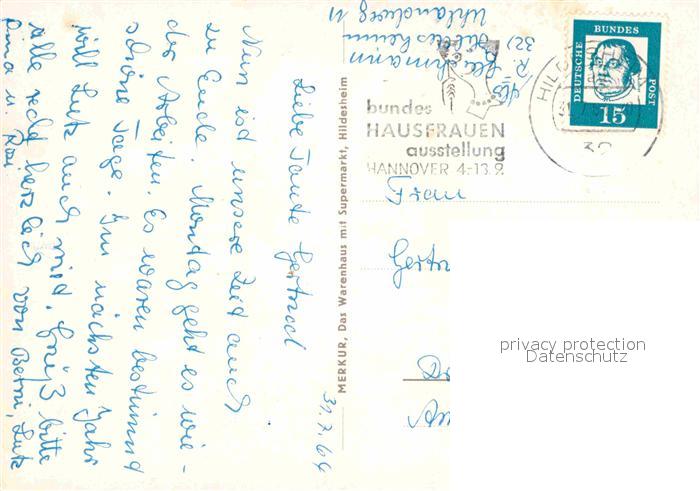 Liebe Tante Gertrud
Nun ist unsere Zeit auch
zu Ende. Montag geht es wie-
der Arbeiten. Es waren bestimmt
schöne Tage. Im nächsten Jahr
will Lutz auch mid. Grüß bitte
alle recht herzlich von Betni, Lutz
u.
31.7.64
MERKUR, Das Warenhaus mit Supermarkt, Hildesheim
R.
32) Hildesheim
Uhlandweg 11
bundes
HAUSFRAUEN
ausstellung
HANNOVER 4.-13.9.
HILD
32
DEUTSCHE BUNDES POST
15
Frau
Gertr
privacy protection
Datenschutz